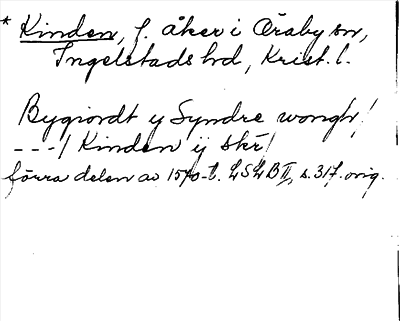 * Kinden, f. åker i Öraby sn,
Ingelstads hd, Krist. l.
Bygiordt y Syndre wongh!
---/ Kinden ij skr/
förra delen av 1570-t. LSLB II, s. 317. orig.